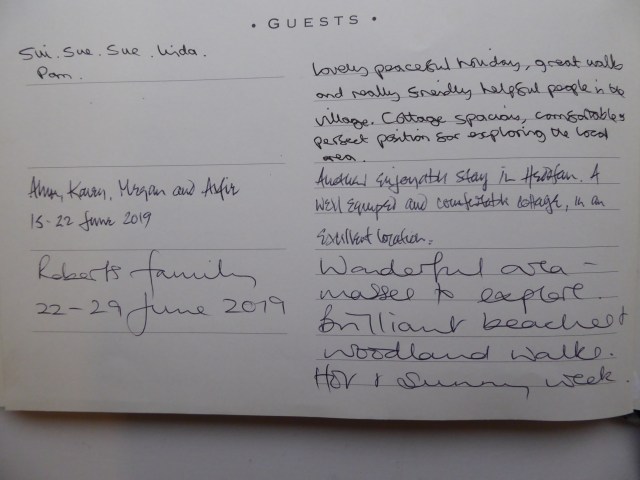 • GUESTS •
Sui. Sue. Sue. Linda.
Pam.
Lovely peaceful holiday, great walks
and really friendly helpful people in the
village. Cottage spacious, comfortable &
perfect position for exploring the local
area.
Karen, Megan and Alfie
15-22 June 2019
Another enjoyable stay in. A
well equiped and comfortable cottage, in an
excellent location.
Roberts family
22-29 June 2019
Wonderful area -
masses to explore.
Brilliant beaches &
woodland walks.
Hot & sunny week.